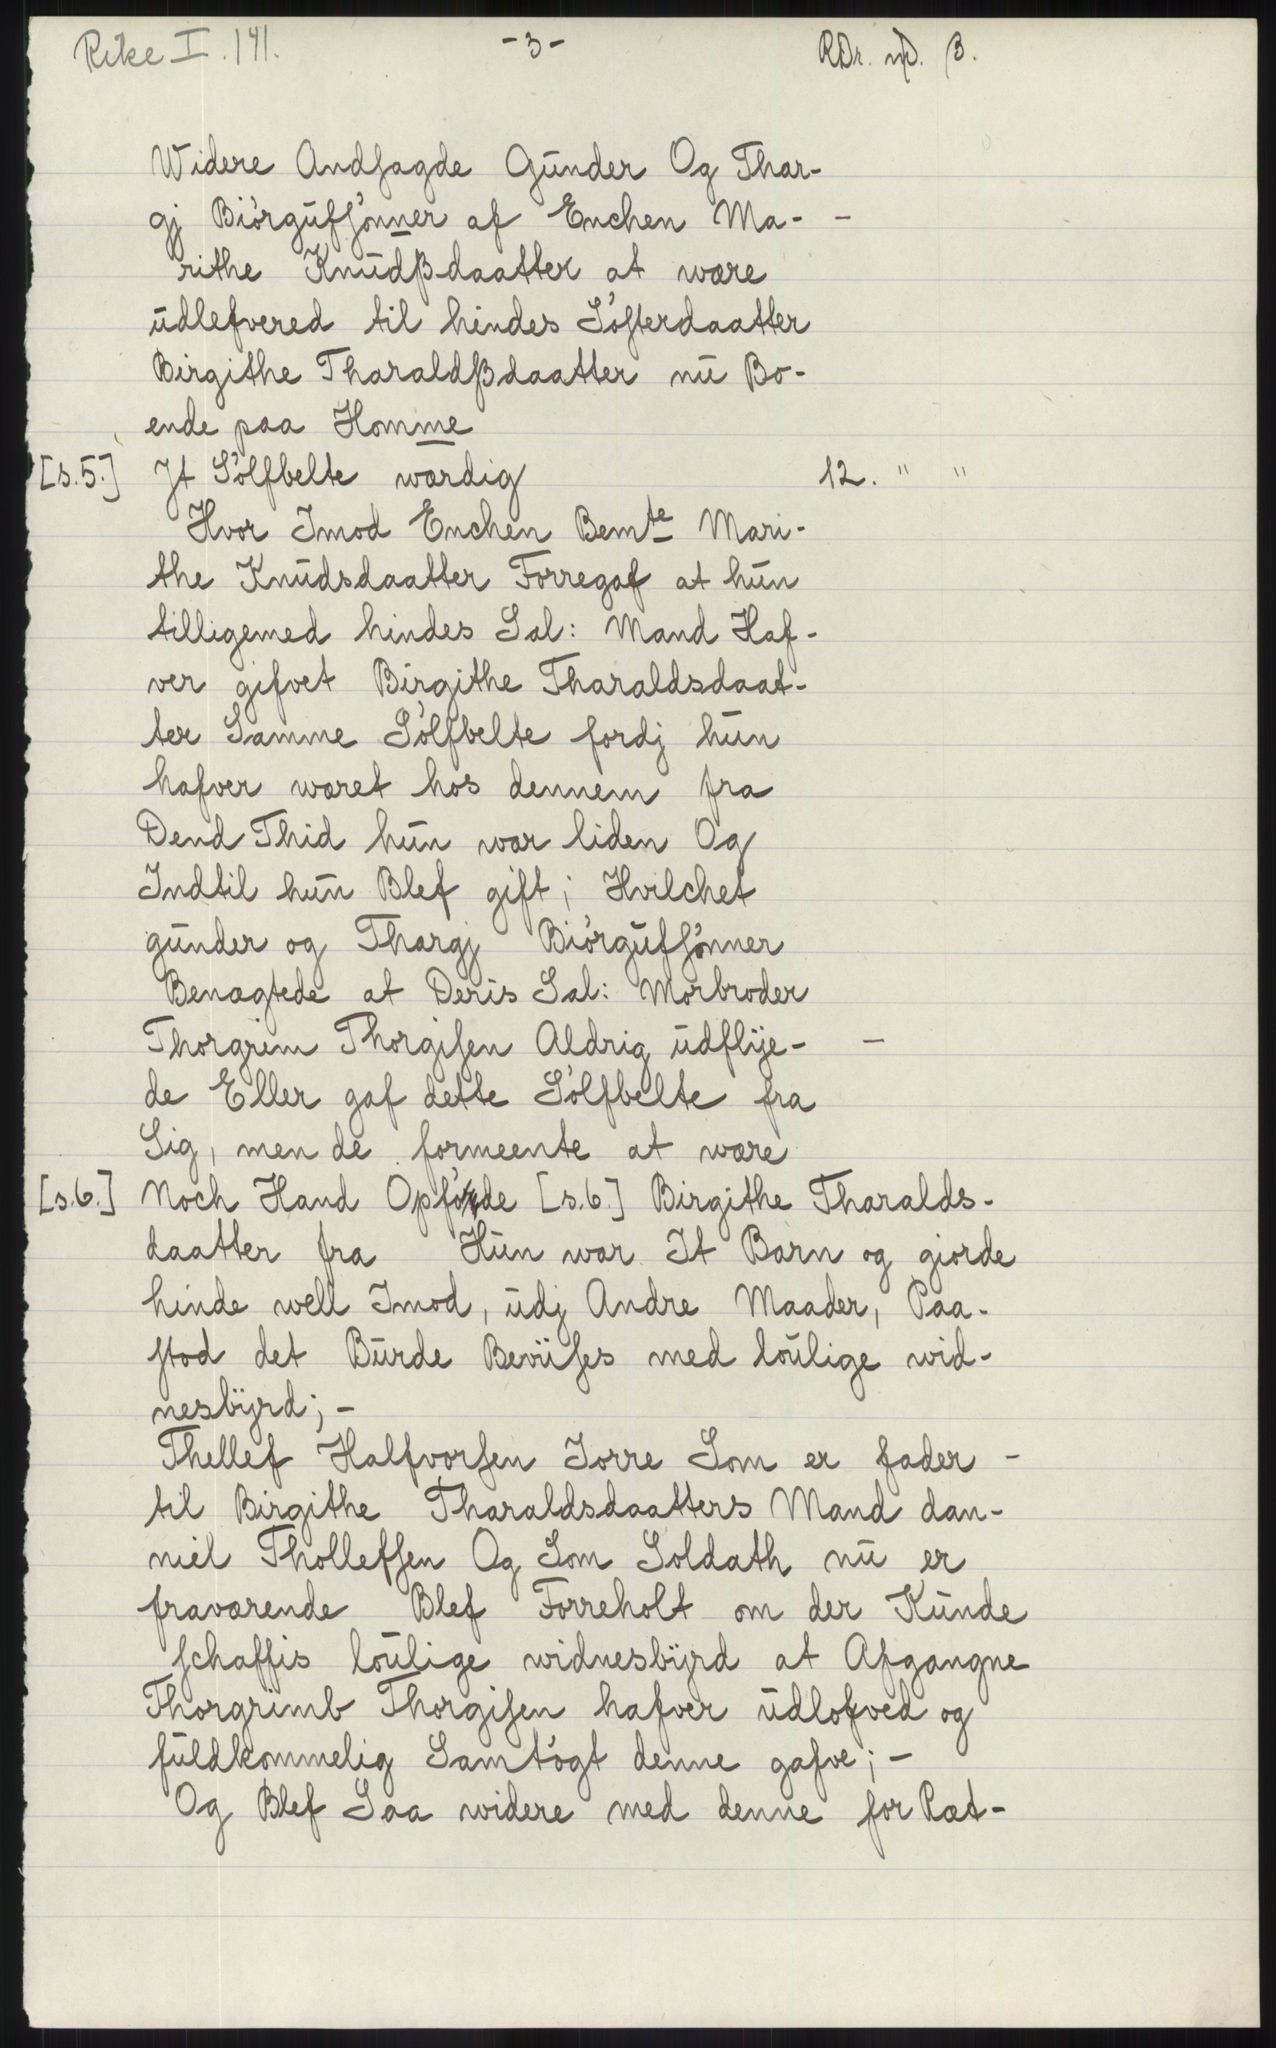 Rike I. 141. -3- RDr. nD. 3.
Widere Andsagde Gūnder Og Thar-
gj Biórgūfsónner af Enchen Ma- -
rithe Knūdßdaatter at wære
ūdlefvered til hendes Sósterdaatter
Birgithe Tharaldßdaatter nū Bo-
ende paa Homme
[s.5.] It Sólfbelte wærdig 12. " "
Hvor Imod Enchen Bemte Mari-
the Knūdsdaatter Forregaf at hūn
tilligemed hindes Sal: Mand Haf-
ver gifvet Birgithe Tharaldsdaat-
ter Samme Sólfbelte fordj hūn
hafver wæret hos dennem fra
Dend Thid hūn war liden Og
Indtil hūn Blef gift; Hvilchet
gūnder og Thargj Biórgūfsónner
Benægtede at Deris Sal: Morbroder
Thorgrim Thorgisen Aldrig ūdflÿe- -
de Eller gaf dette Sólfbelte fra
Sig, men de formeente at wære
[s.6.] Noch Hand Opfóde [s.6.] Birgithe Tharalds-
daatter fra Hūn war It Barn og giorde
hinde well Imod, ūdj Andre Maader, Paa-
stod det Būrde Beviises med loūlige wid-
nesbÿrd; -
Thellef Halfvorsen Jorre Som er fader -
til Birgithe Tharaldsdaatters Mand dan-
niel Thollefsen Og Som Soldath nū er
fraværende Blef Forreholt om der Kūnde
schaffis loūlige widnesbÿrd at Afgangne
Thorgrimb Thorgisen hafver ūdlofved og
fūldkommelig Samtógt denne gafve; -
Og Blef Saa widere med denne for Ræt-